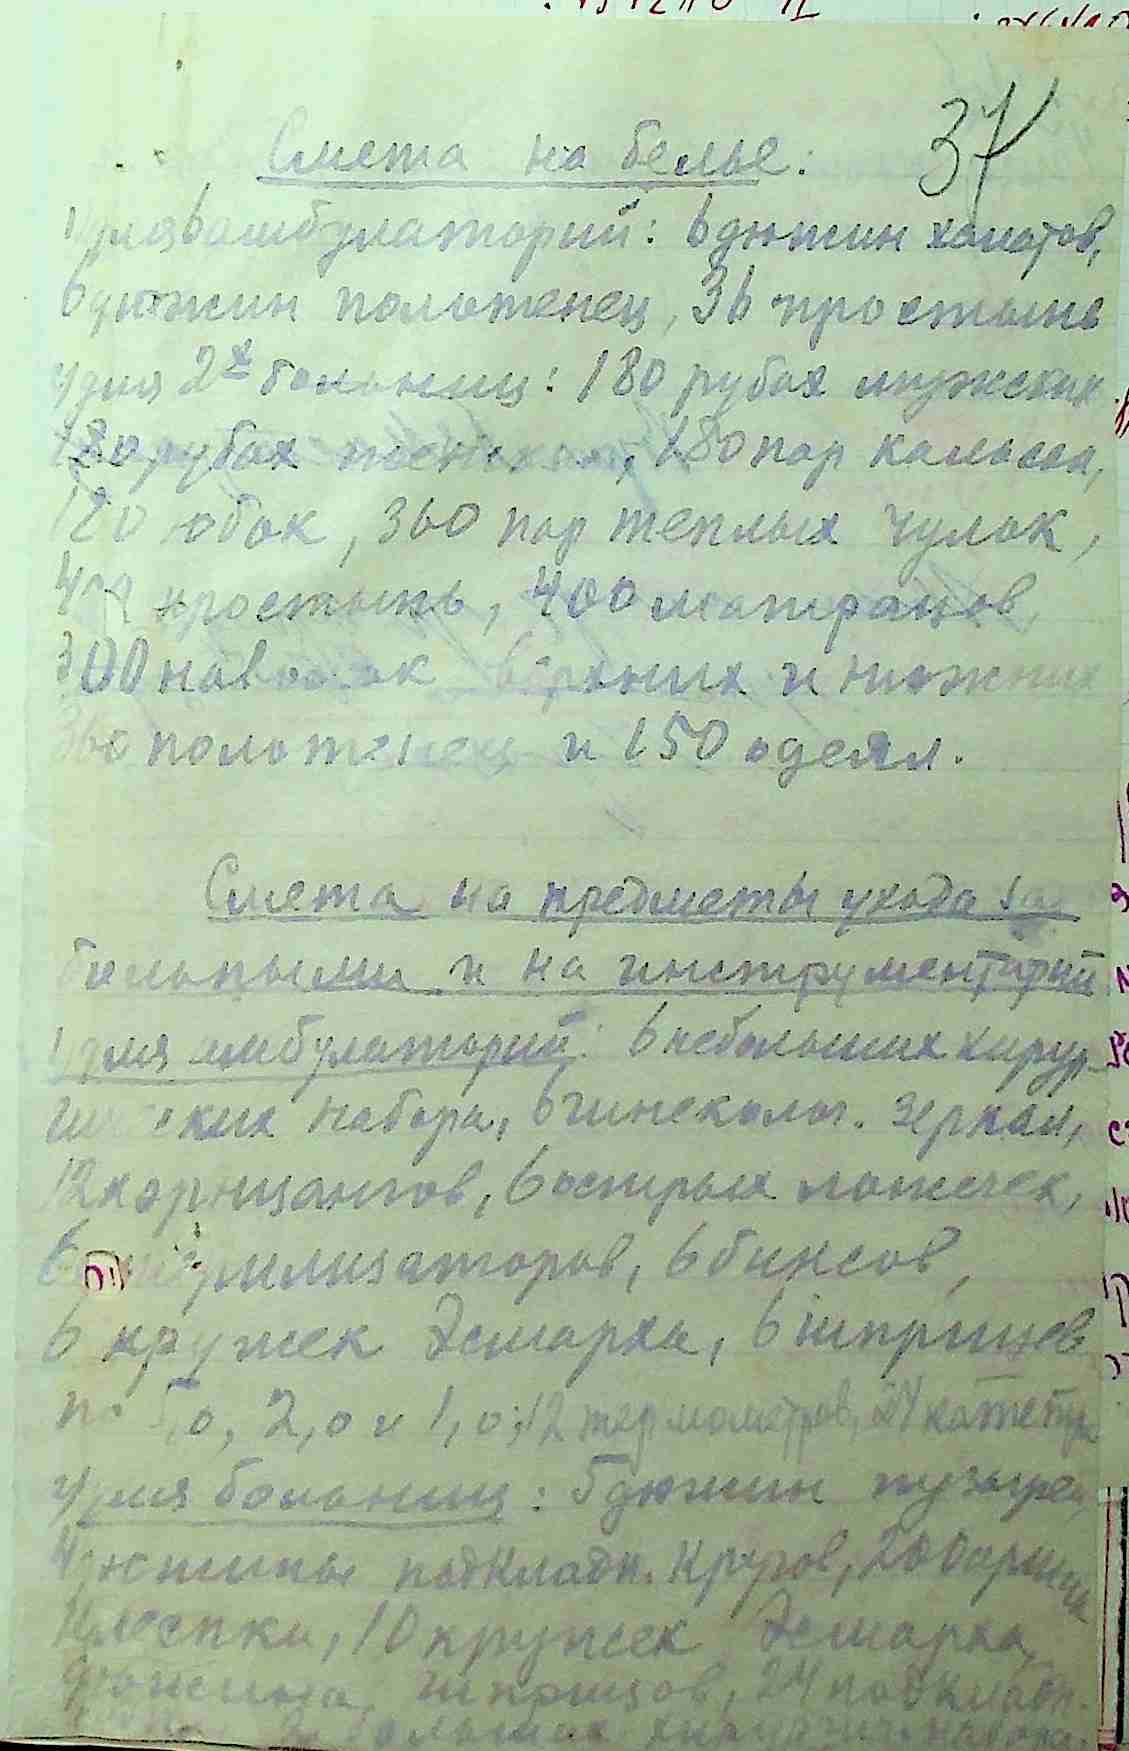 37
Смета на белье:
1) для 6 амбулаторий: 6 дюжин халатов,
6 дюжин полотенец, 36 простынь
2) для 2х больниц: 180 рубах мужских
180 рубах женских, 180 пар кальсон,
120 юбок, 360 пар теплых чулок,
простынь, 400 матрацов,
наволок верхних и нижних
360 полотенец и 150 одеял.
Смета на предметы ухода за
больными и на инструментарий
1) для амбулаторий: 6 небольших хирур-
гических набора, 6 гинеколог. зеркал,
12 корнцангов, 6 острых ложечек,
6 стерилизаторов, 6 биксов,
6 кружек Эсмарха, 6 шприцев
по 5,0, 2,0 и 1,0; 12 термометров, 24 катетера
2) для больниц: 5 дюжин пузырей,
4 дюжины подкладн. кругов, 200 аршин
клеенки, 10 кружек Эсмарха,
дюжина шприцов, 24 подкладн.
больших хирургич. набора.